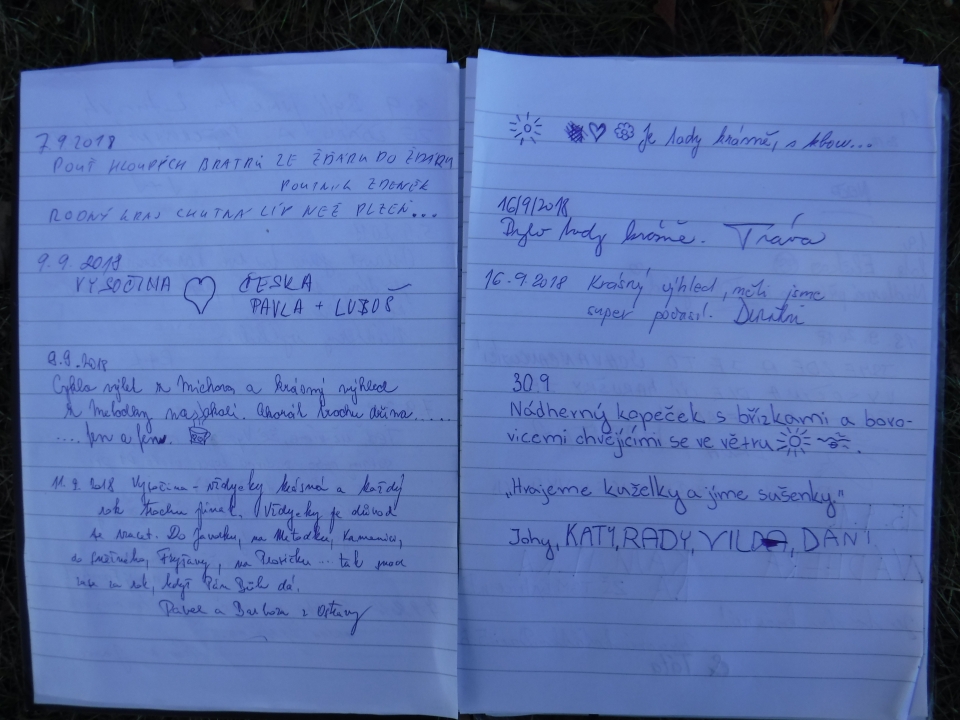 7.9.2018
POUŤ HLOUPÝCH BRATRŮ ZE ŽĎÁRU DO ŽĎÁRU
POUTNÍK ZDENĚK
RODNÝ KRAJ CHUTNÁ LÍP NEŽ PLZEŇ...
9.9.2018
VYSOČINA ČESKA
PAVLA + LUBOŠ
9.9.2018
Cyklo výlet z a krásný výhled
z trochu .....
.... jen a jen.
11.9.2018 Vysočina - vždycky krásná a každý
rok trochu jinak. Vždycky je důvod
se vracet. Do Javorku, na Metodku, Kamenici,
do Sněžného, Fryšavy, na ... tak snad
zase za rok, když Pán Bůh dá.
Pavel a Barbora z Ostravy
Je tady krásně, s ...
16/9/2018
Bylo tady krásně. Tráva
16.9.2018 Krásný výhled, měli jsme
super počasí.
30.9
Nádherný kopeček s břízkami a boro-
vicemi chvějícími se ve větru
„Hrajeme kuželky a jíme sušenky."
Johy, KATY, RADY, VILDA, DAN